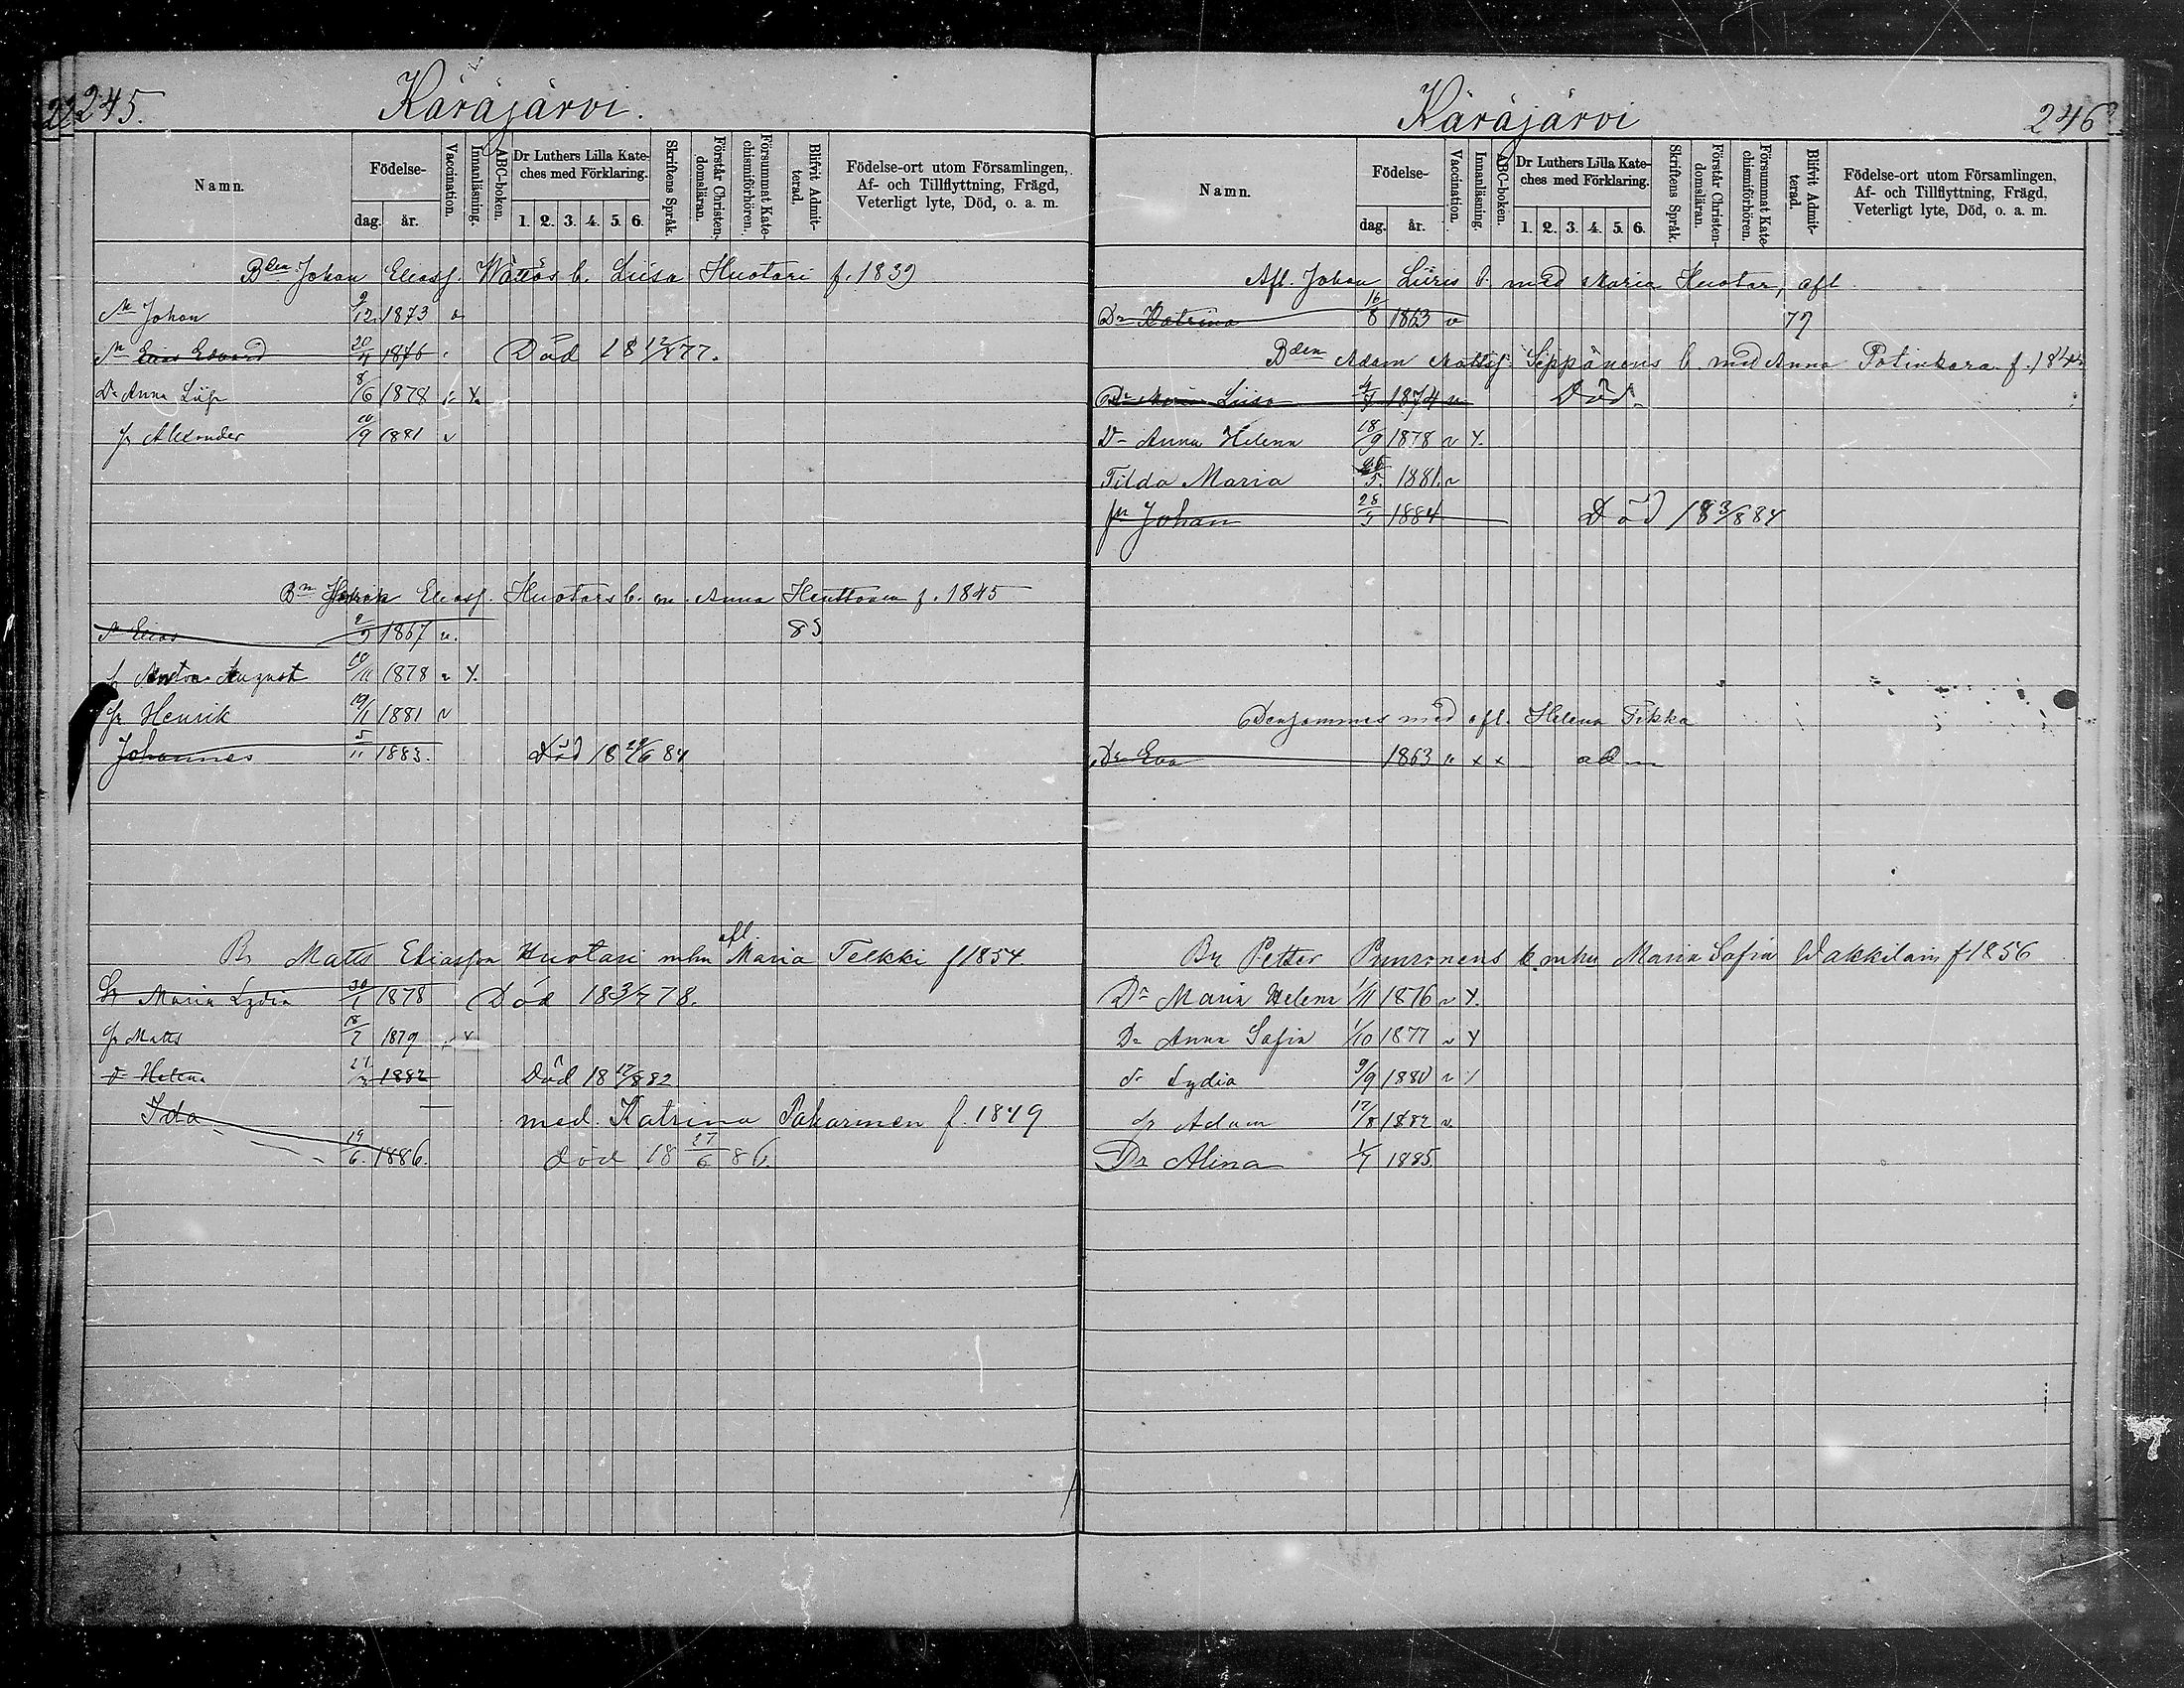 245.
Käräjärvi.
Namn.
Födelse-
dag.
år.
Vaccination.
Innanläsning.
ABC-boken.
Dr Luthers Lilla Kate-
ches med Förklaring.
1. 2. 3. 4. 5. 6.
Skriftens Språk.
Förstår Christen-
domsläran.
Försummat Kate-
chismiförhören.
Blifvit Admit-
terad.
Födelse-ort utom Församlingen,
Af- och Tillflyttning, Frägd,
Veterligt lyte, Död, o. a. m.
Bden Johan Eliass. b. Liisa Huotari f. 1839
Johan 9/12 1873 v
Elias Edvard 20/4 Död 18 12/4 77.
Dr Anna 8/6 1878 v
Alexander 10/9 1881 v
Bn Eliass. Huotars b. m. Anna Henttonen f. 1845
Elias 2/9 1867 v. 85
August 10/11 1878 v Y.
Henrik 19/1 1881 v
Johannes 5/11 1883. Död 18 20/6 84
Br Matts Eliasson Huotari mhu afl. Maria Telkki f 1854
Maria Lydia 30/1 1878 Död 18 3/7 78.
Matts 18/7 1879
Helena 1882 Död 18 12/8 82
Ida med Katrina Pakarinen f. 1849
19/6. 1886. död 18 27/6 86.
Käräjärvi
246
Namn.
Födelse-
dag.
år.
Vaccination.
Innanläsning.
ABC-boken.
Dr Luthers Lilla Kate-
ches med Förklaring.
1. 2. 3. 4. 5. 6.
Skriftens Språk.
Förstår Christen-
domsläran.
Försummat Kate-
chismiförhören.
Blifvit Admit-
terad.
Födelse-ort utom Församlingen,
Af- och Tillflyttning, Frägd,
Veterligt lyte, Död, o. a. m.
Afl. Johan b. med Maria Huotar, afl
Dr Katrina 16/8 1863 v 77
Bden Adam Mattss. Seppänens b. med Anna Potinkara f.
Liisa 1874 Död
Dr Anna Helena 18/9 1878 v Y.
Tilda Maria 1881. v
Johan 28/5 1884 Död 18 3/8 84
Densammes med afl. Helena Tikka
Dr Eva 1863 v x x
Br Petter b. mhu Maria Sofia Wakkilain f 1856
Dr Maria Helena 1/11 1876 v Y.
Dr Anna Sofia 1/10 1877 v Y
dr Lydia 9/9 1880 v
Adam 17/8 1882 v.
Dr Alina 1/7 1885